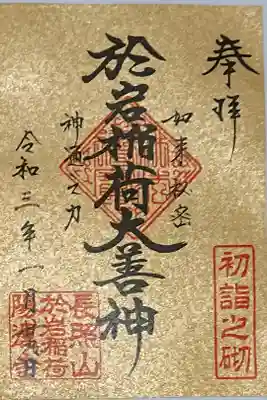 奉拝
如来秘密
於岩稲荷大善神
神通之力
令和三年一月四日
初詣之砌
長照山
於岩稲荷
陽運寺